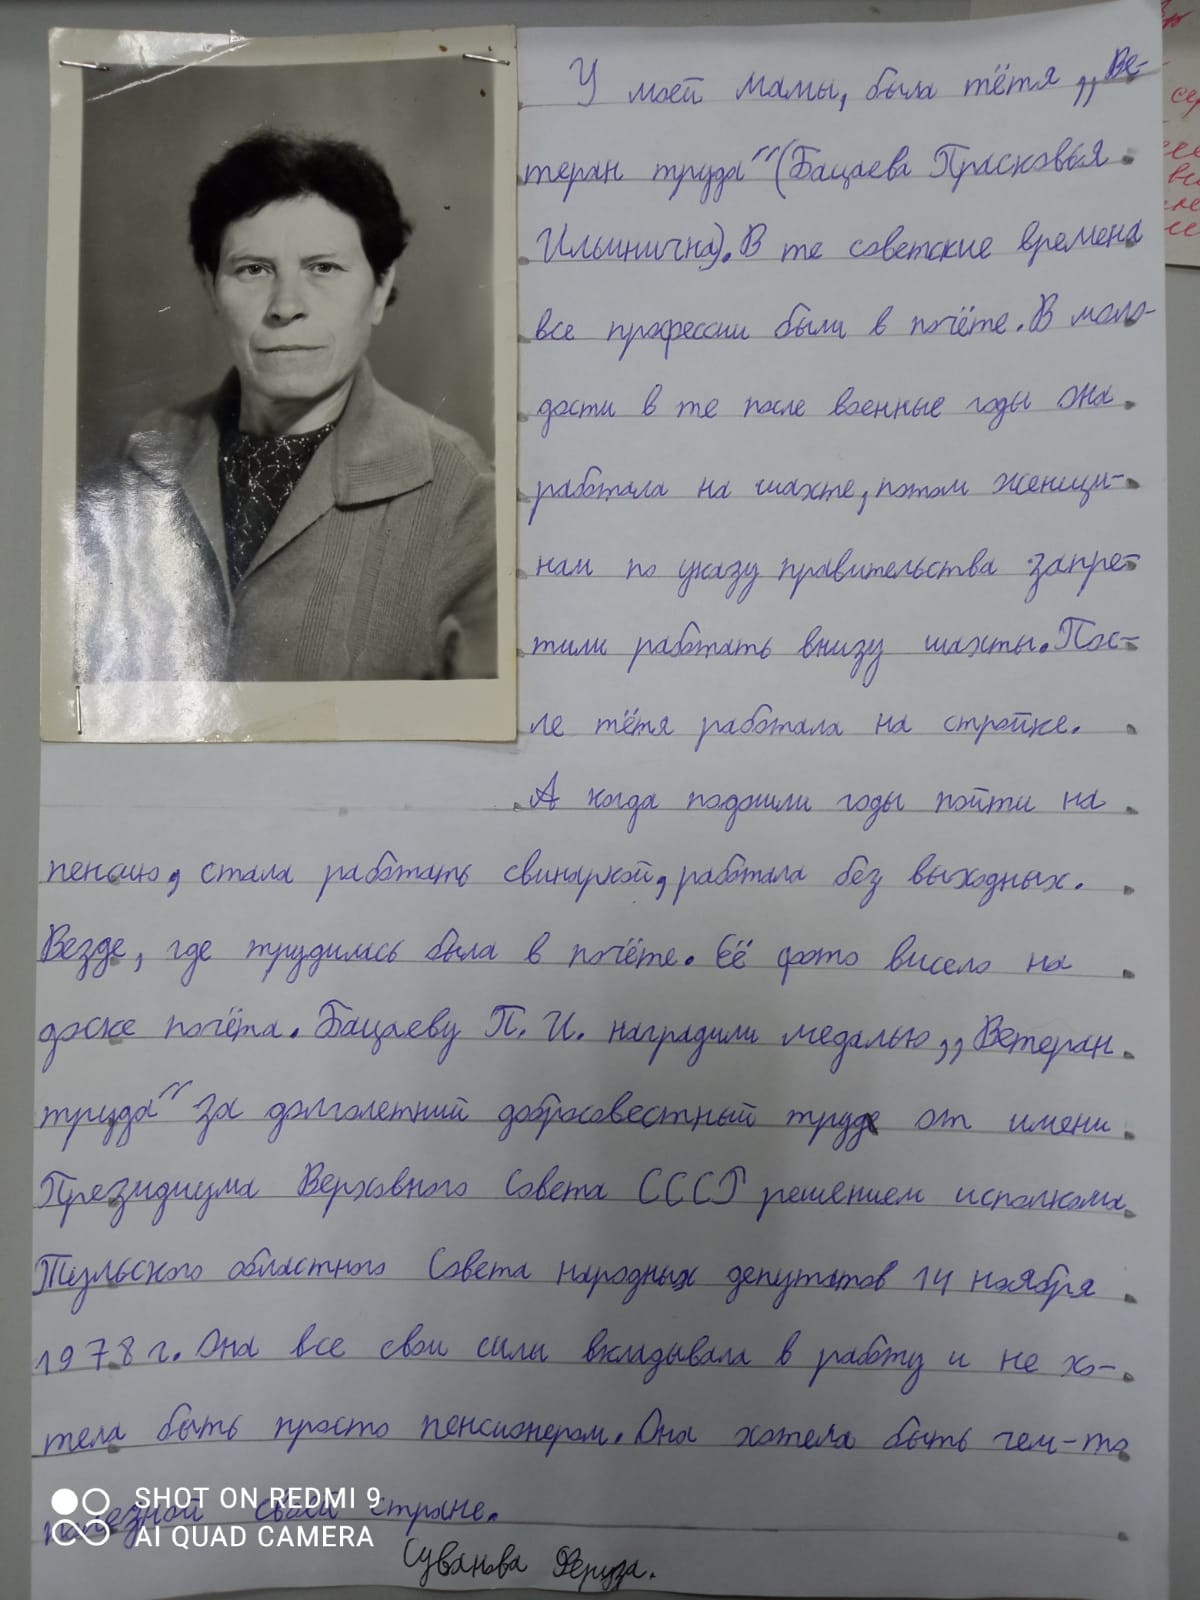 У моей мамы, была тётя „Ве-
теран труда“ (Бацаева Прасковья
Ильинична). В те советские времена
все профессии были в почёте. В моло-
дости в те после военные годы она
работала на шахте, потом женщи-
нам по указу правительства запре-
тили работать внизу шахты. Пос-
ле тётя работала на стройке.
А когда подошли годы пойти на
пенсию, стала работать свинаркой, работала без выходных.
Везде, где трудилась была в почёте. Её фото висело на
доске почёта. Бацаеву П. И. наградили медалью „Ветеран
труда“ за долголетний добросовестный труд от имени
Президиума Верховного Совета СССР решением исполкома
Тульского областного Совета народных депутатов 14 ноября
1978 г. Она все свои силы вкладывала в работу и не хо-
тела быть просто пенсионером. Она хотела быть чем-то
полезной своей стране.
Суванова Феруза.
SHOT ON REDMI 9
AI QUAD CAMERA